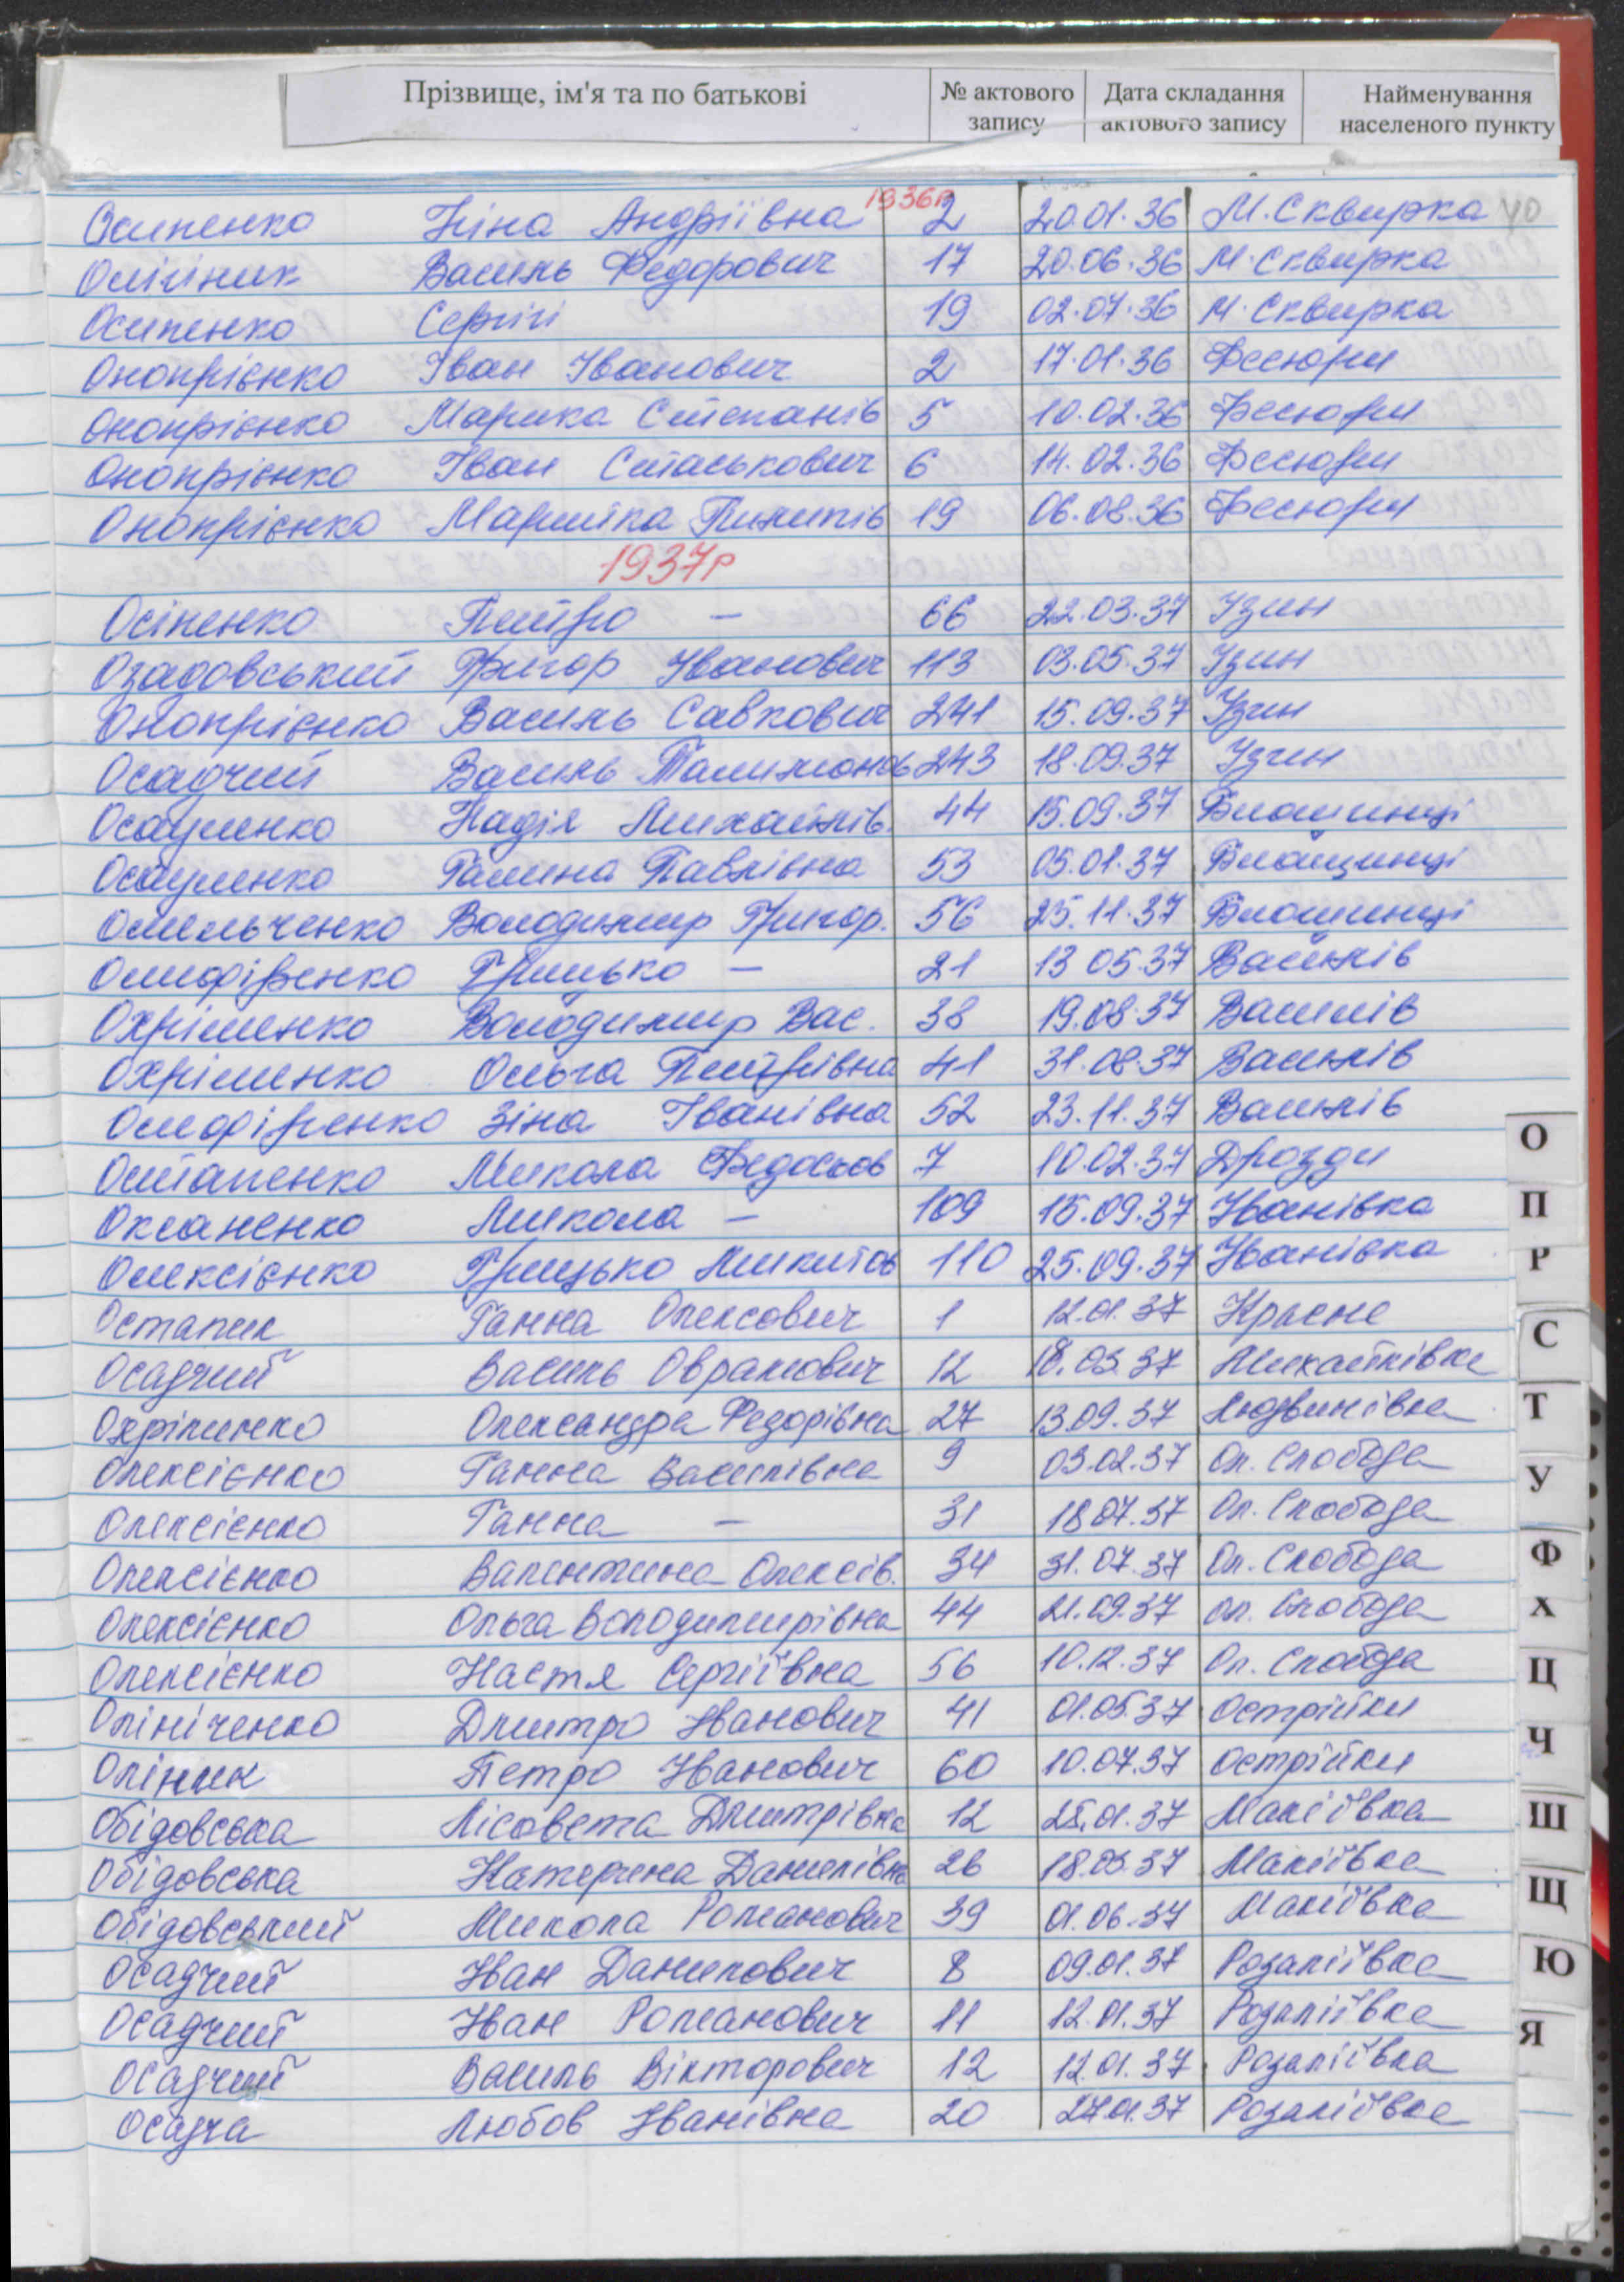 Прізвище, ім'я та по батькові № актового запису Дата складання актового запису Найменування населеного пункту
1936р
40
Осипенко Ніна Андріївна 2 20.01.36 М.Сквирка
Олійник Василь Федорович 17 20.06.36 М.Сквирка
Осипенко Сергій 19 02.07.36 М.Сквирка
Онопрієнко Іван Іванович 2 17.01.36 Фесюри
Онопрієнко Марика Степанів 5 10.02.36 Фесюри
Онопрієнко Іван Стаськович 6 14.02.36 Фесюри
Онопрієнко Марийка Пилипів 19 06.08.36 Фесюри
1937р
Осіпенко Петро — 66 22.03.37 Узин
Озадовський Григор Іванович 113 03.05.37 Узин
Онопрієнко Василь Савкович 241 15.09.37 Узин
Осадчий Василь 243 18.09.37 Узин
Осауленко Надія Михайлів. 44 15.09.37 Блощинці
Осауленко Галина Павлівна 53 05.01.37 Блощинці
Омельченко Володимир Григор. 56 25.11.37 Блощинці
Онофрієнко Грицько — 21 13 05.37 Василів
Охріменко Володимир Вас. 38 19.08.37 Василів
Охріменко Ольга Петрівна 41 31.08.37 Василів
Зіна Іванівна 52 23.11.37 Василів
Остапенко Микола Федосьов 7 10.02.37 Дрозди
Оксаненко Микола — 109 15.09.37 Іванівка
Олексієнко Грицько Микитов 110 25.09.37 Іванівка
Остапик Ганна Олексович 1 12.01.37 Красне
Осадчий Василь Оврамович 12 18.03.37 Михайлівка
Охріменко Олександра Федорівна 27 13.09.37 Людвинівка
Олексієнко Ганна Василівна 9 03.02.37 Ол. Слобода
Олексієнко Ганна — 31 18 07.37 Ол. Слобода
Олексієнко Валентина Олексів. 34 31.07.37 Ол. Слобода
Олексієнко Ольга Володимирівна 44 21.09.37 Ол. Слобода
Олексієнко Настя Сергіївна 56 10.12.37 Ол. Слобода
Олініченко Дмитро Іванович 41 01.05.37 Острійки
Олійник Петро Іванович 60 10.07.37 Острійки
Обідовська Лісовета Дмитрівна 12 25.01.37 Макіївка
Обідовська Катерина Данилівна 26 18.03.37 Макіївка
Обідовський Микола Романович 39 01.06.37 Макіївка
Осадчий Іван Данилович 8 09.01.37 Розаліївка
Осадчий Іван Романович 11 12.01.37 Розаліївка
Осадчий Василь Вікторович 12 12.01.37 Розаліївка
Осадча Любов Іванівна 20 27.01.37 Розаліївка
О
П
Р
С
Т
У
Ф
Х
Ц
Ч
Ш
Щ
Ю
Я